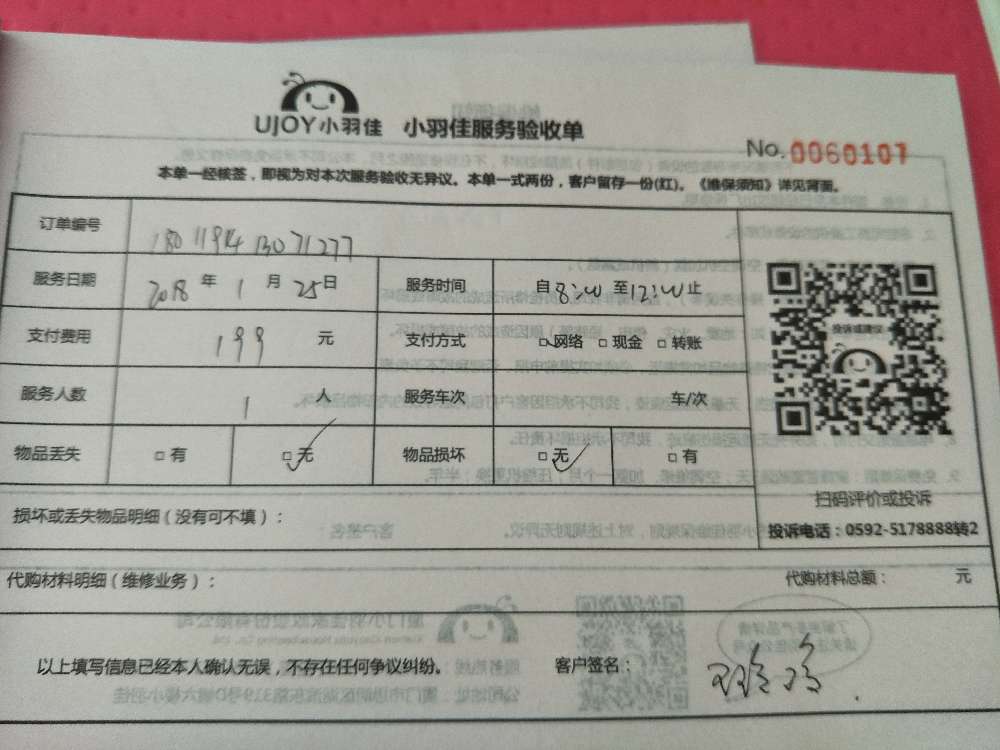 UJOY小羽佳 小羽佳服务验收单
No. 0060107
本单一经核签，即视为对本次服务验收无异议。本单一式两份，客户留存一份(红)。《维保须知》详见背面。
订单编号
服务日期 2018 年 1 月 25 日 服务时间 自 8:00 至 12:00 止
支付费用 199 元 支付方式 □网络 □现金 □转账
服务人数 1 人 服务车次 车/次
物品丢失 □有 □无 物品损坏 □无 □有
投诉或建议
扫码评价或投诉
投诉电话：0592-5178888转2
损坏或丢失物品明细（没有可不填）：
代购材料明细（维修业务）： 代购材料总额： 元
以上填写信息已经本人确认无误，不存在任何争议纠纷。 客户签名：